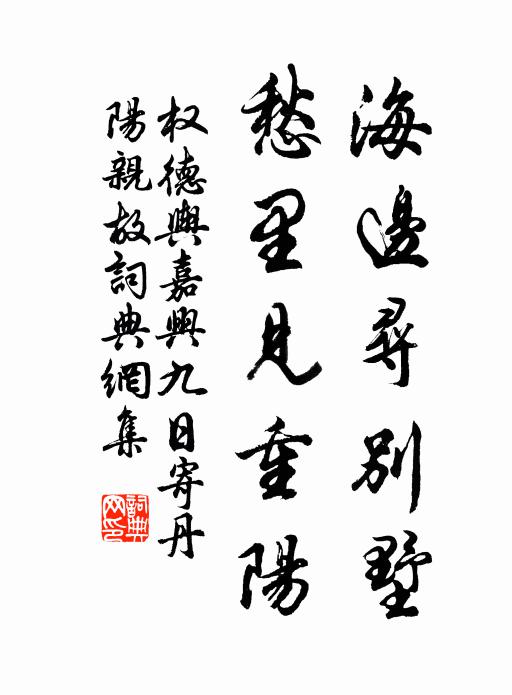 海邊尋別墅
愁里見重陽
权德輿嘉興九日寄丹
陽親故詞典網集
詞典
网印